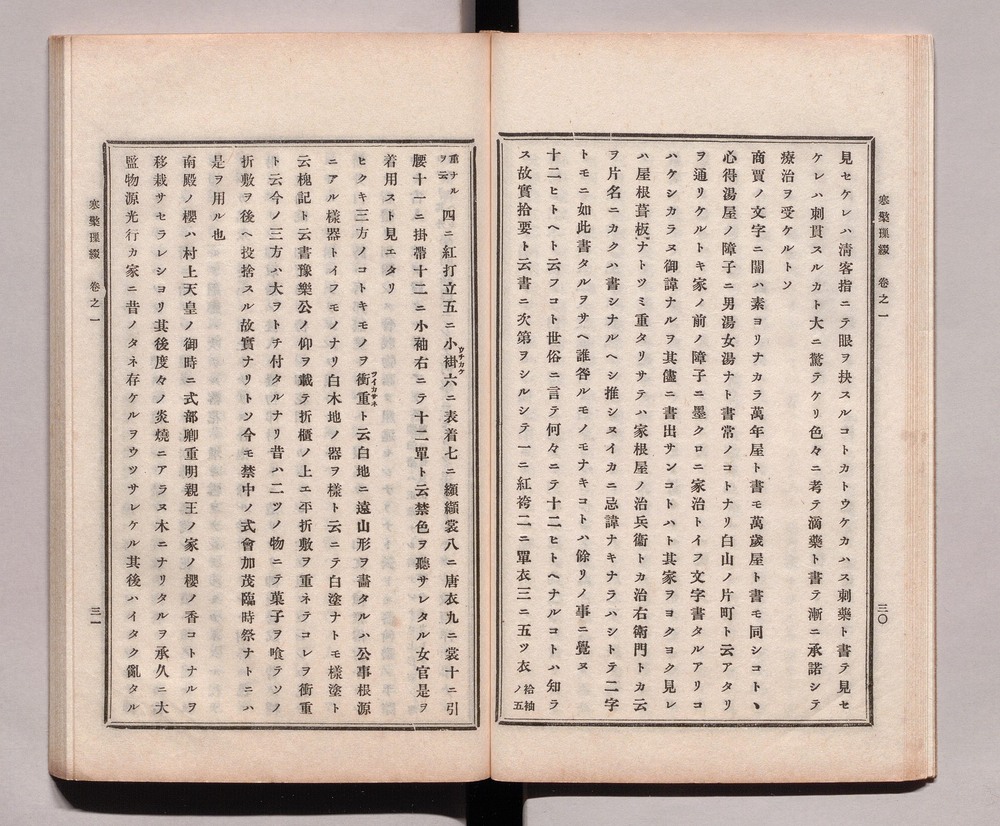 寒檠璅綴　卷之一
三〇
見セケレハ清客指ニテ眼ヲ抉スルコトカトウケカハス刺藥ト書テ見セ
ケレハ刺貫スルカト大ニ驚テケリ色々ニ考テ滴藥ト書テ漸ニ承諾シテ
療治ヲ受ケルトソ
商賈ノ文字ニ闇ハ素ヨリナカラ萬年屋ト書モ萬歲屋ト書モ同シコトヽ
心得湯屋ノ障子ニ男湯女湯ナト書常ノコトナリ白山ノ片町ト云アタリ
ヲ通リケルトキ家ノ前ノ障子ニ墨クロニ家治トイフ文字書タルアリコ
ハケシカラヌ御諱ナルヲ其儘ニ書出サンコトハト其家ヲヨクヨク見レ
ハ屋根葺板ナトツミ重タリサテハ家根屋ノ治兵衞トカ治右衞門トカ云
ヲ片名ニカクハ書シナルヘシ推シヌイカニ忌諱ナキナラハシトテ二字
トモニ如此書タルヲサヘ誰咎ルモノモナキコトハ餘リノ事ニ覺ヌ
十二ヒトヘト云フコト世俗ニ言テ何々ニテ十二ヒトヘナルコトハ知ラ
ス故實拾要ト云書ニ次第ヲシルシテ一ニ紅袴二ニ單衣三ニ五ツ衣袷袖ノ五
重ナルヲ云四ニ紅打立五ニ小褂ウチカケ六ニ表着七ニ纐纈裳八ニ唐衣九ニ裳十ニ引
腰十一ニ掛帶十二ニ小袖右ニテ十二單ト云禁色ヲ聽サレタル女官是ヲ
着用スト見エタリ
ヒクキ三方ノコトキモノヲ衝重ツイカサネト云白地ニ遠山形ヲ畵タルハ公事根源
ニアル樣器トイフモノナリ白木地ノ器ヲ樣ト云ニテ白塗ナトモ樣塗ト
云槐記ト云書豫樂公ノ仰ヲ載テ折櫃ノ上エ平折敷ヲ重ネテコレヲ衝重
ト云今ノ三方ハ大ヲトチ付タルナリ昔ハ二ツノ物ニテ菓子ヲ喰ラソノ
折敷ヲ後ヘ投捨スル故實ナリトソ今モ禁中ノ式會加茂臨時祭ナトニハ
是ヲ用ル也
南殿ノ櫻ハ村上天皇ノ御時ニ式部卿重明親王ノ家ノ櫻ノ香コトナルヲ
移栽サセラレシヨリ其後度々ノ炎燒ニアラヌ木ニナリタルヲ承久ニ大
監物源光行カ家ニ昔ノタネ存ケルヲウツサレケル其後ハイタク亂タル
寒檠璅綴　卷之一
三一